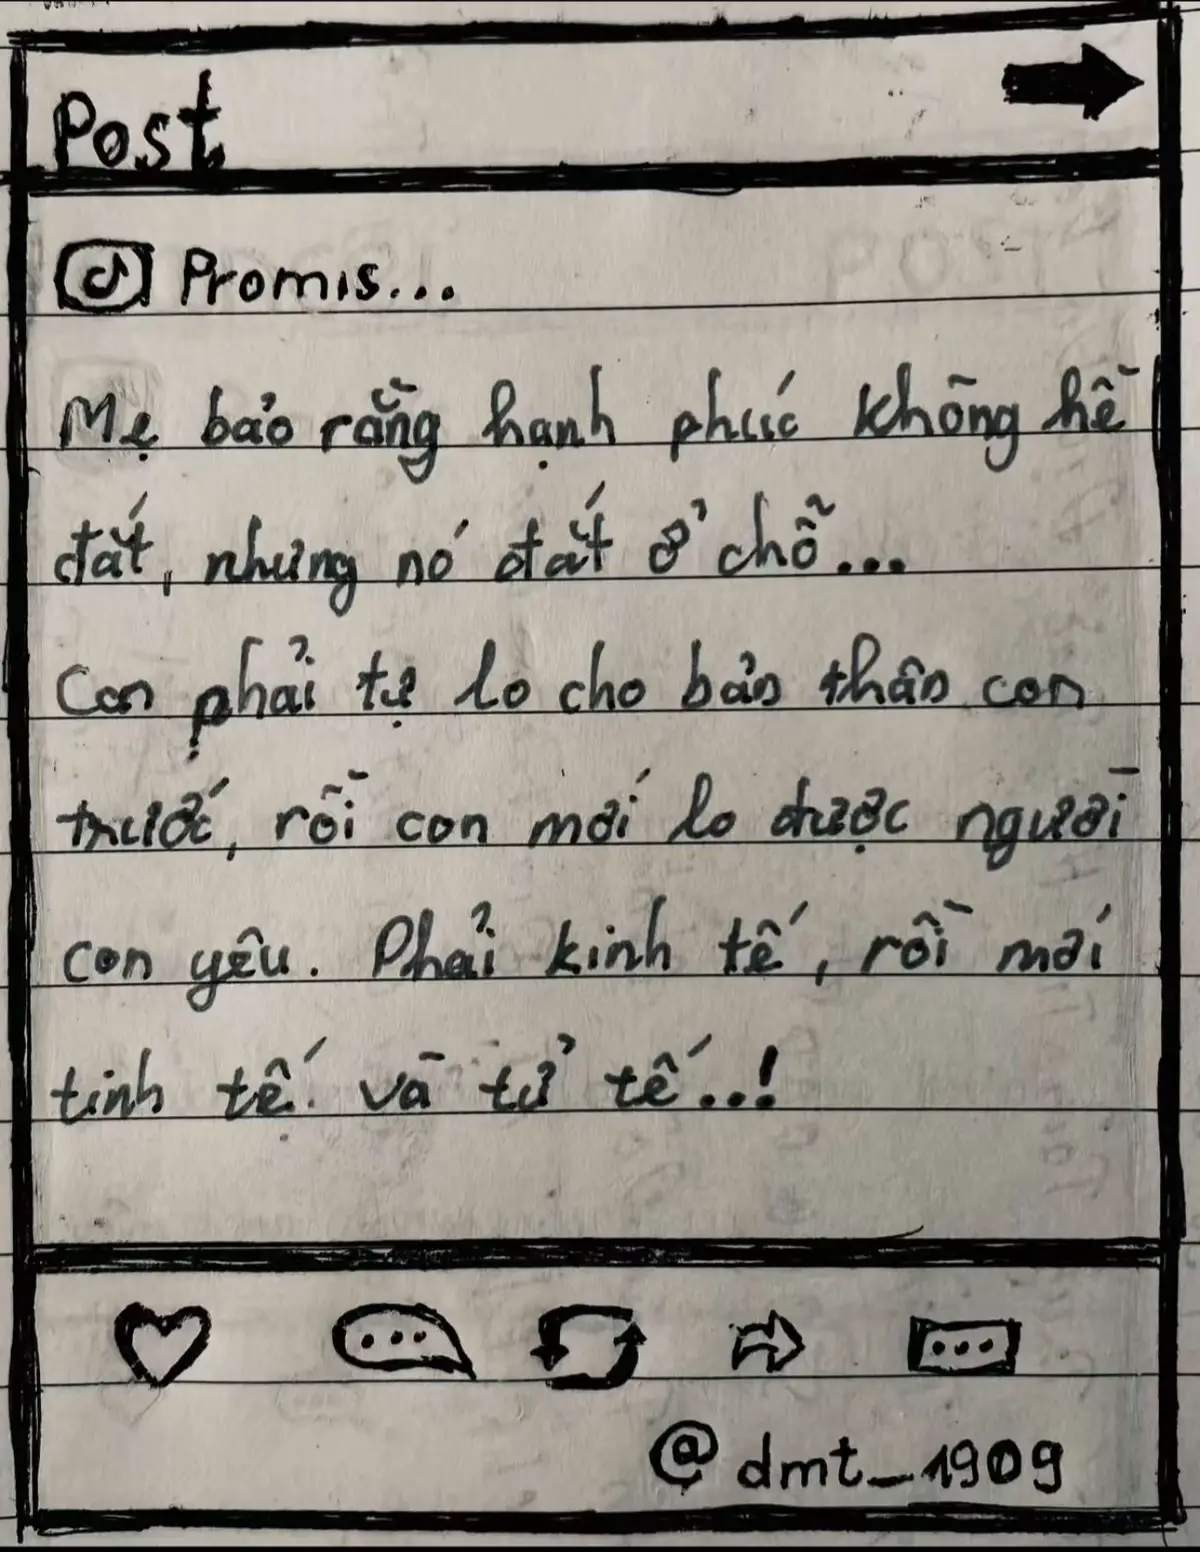 Post
Promis...
Mẹ bảo rằng hạnh phúc không hề
đắt, nhưng nó đắt ở chỗ...
Con phải tự lo cho bản thân con
trước, rồi con mới lo được người
con yêu. Phải kinh tế, rồi mới
tinh tế và tử tế..!
@dmt_1909